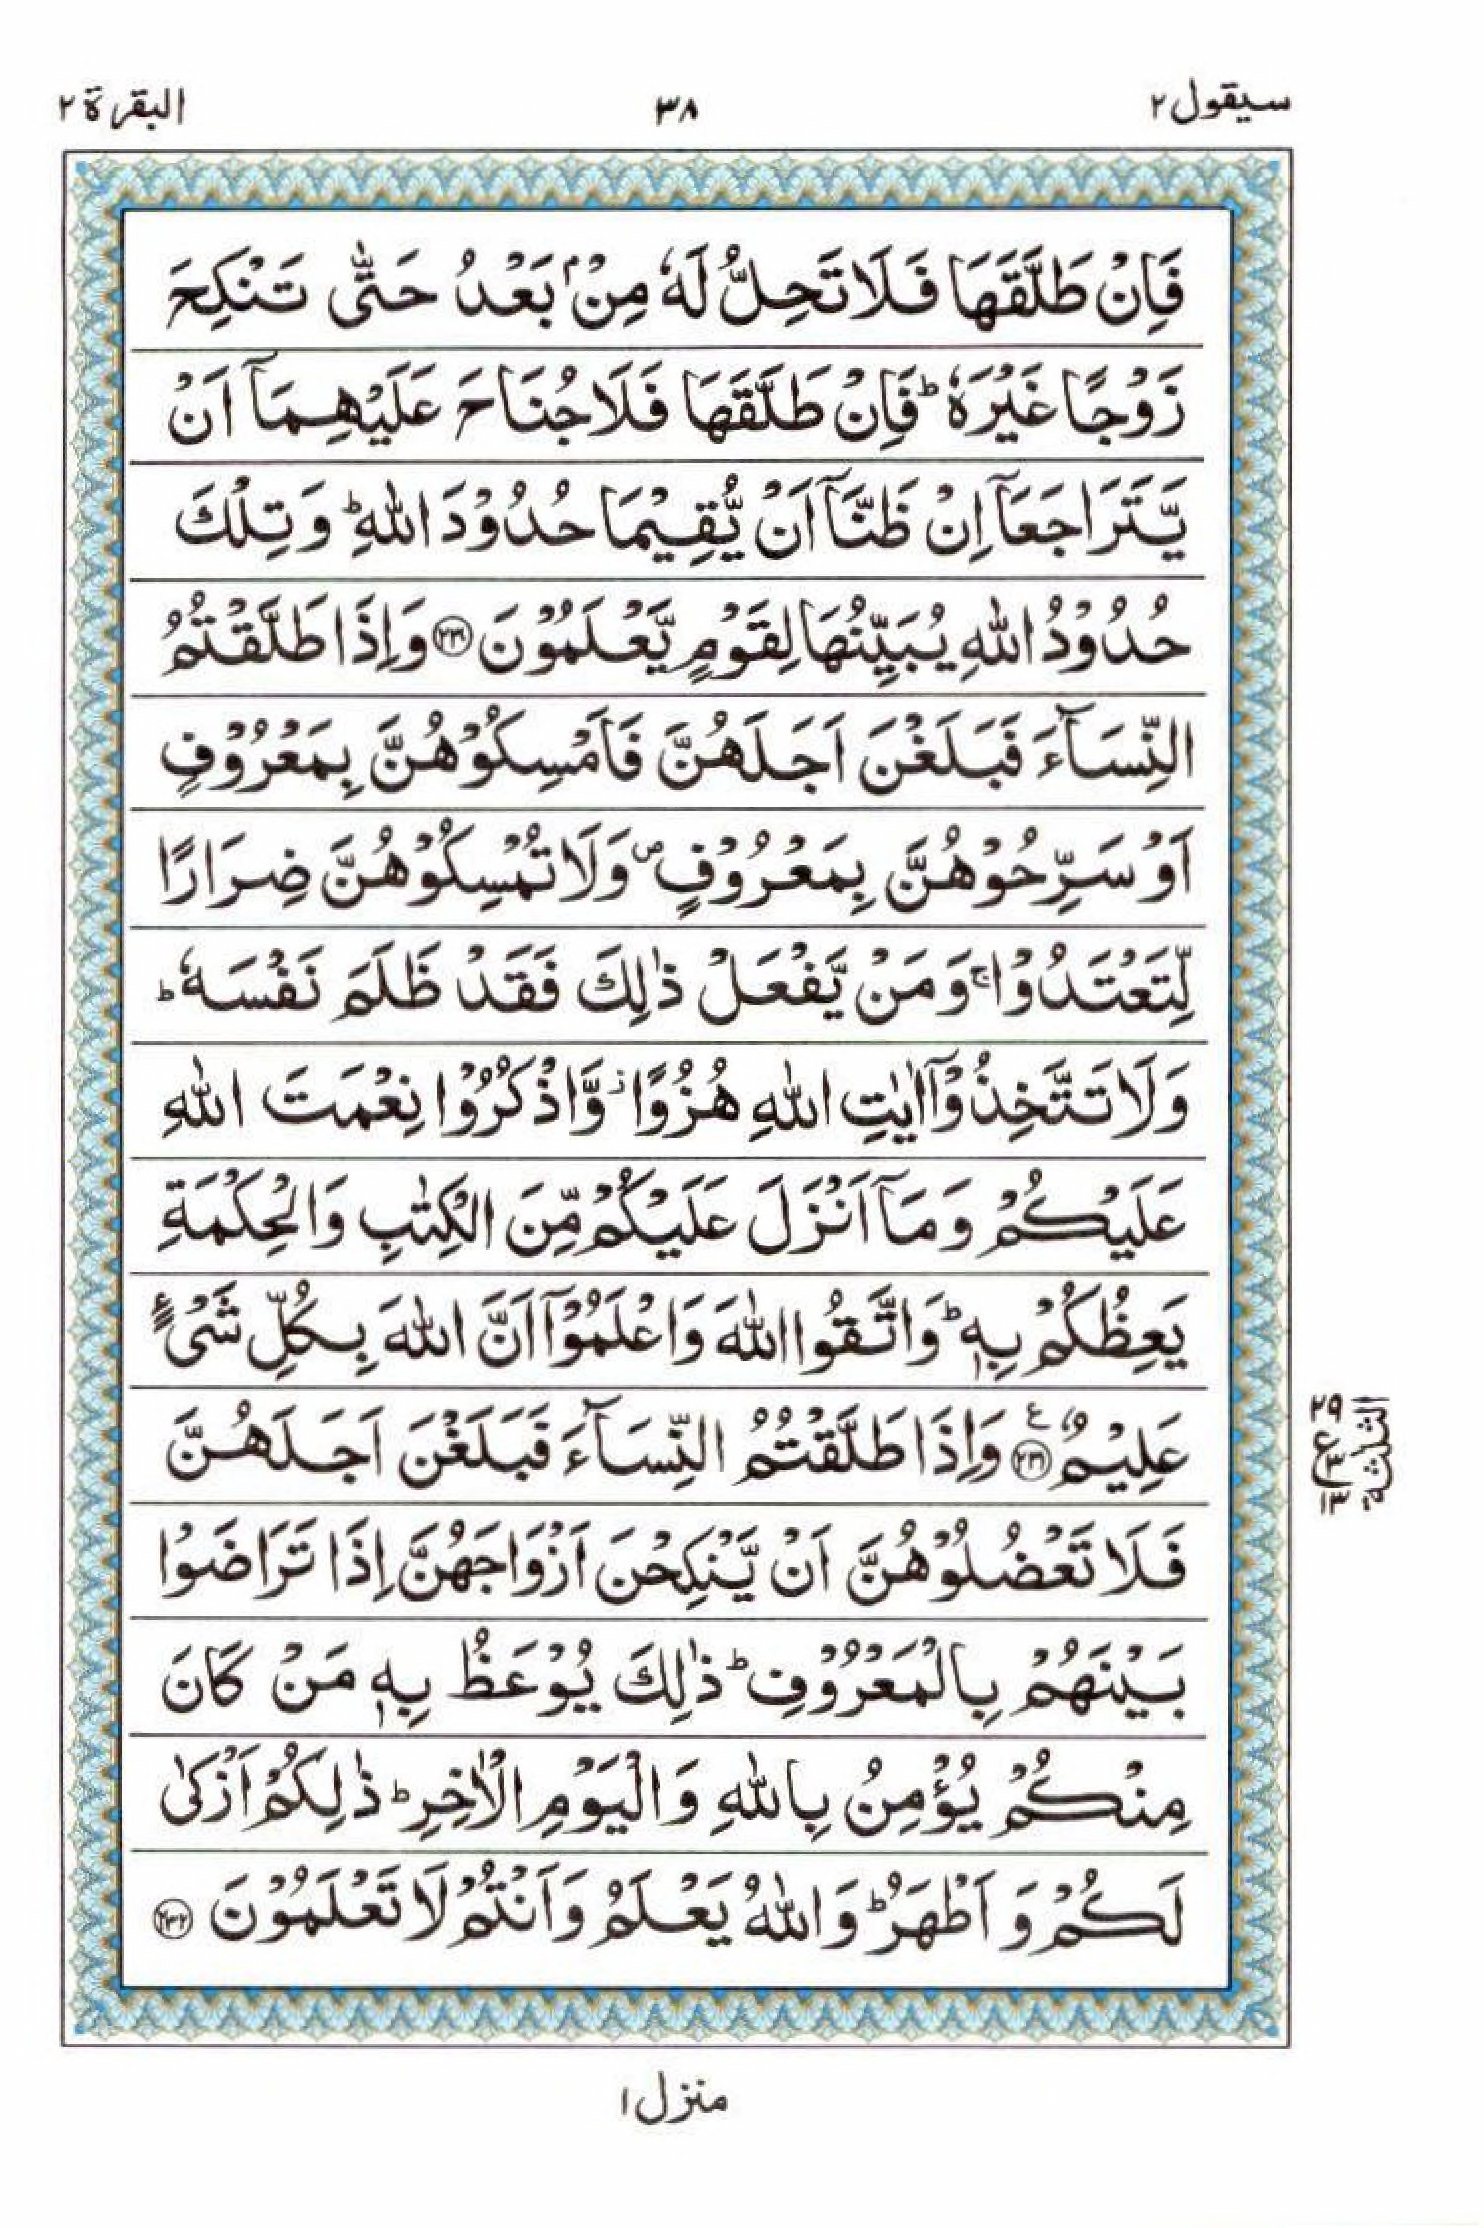 سيقول ٢
٣٨
البقرة ٢
فَاِنْ طَلَّقَهَا فَلَا تَحِلُّ لَهٗ مِنْۢ بَعْدُ حَتّٰى تَنْكِحَ
زَوْجًا غَيْرَهٗ ؕ فَاِنْ طَلَّقَهَا فَلَا جُنَاحَ عَلَيْهِمَاۤ اَنْ
يَّتَرَاجَعَاۤ اِنْ ظَنَّاۤ اَنْ يُّقِيْمَا حُدُوْدَ اللّٰهِ ؕ وَتِلْكَ
حُدُوْدُ اللّٰهِ يُبَيِّنُهَا لِقَوْمٍ يَّعْلَمُوْنَ ﴿٢٣٠﴾ وَاِذَا طَلَّقْتُمُ
النِّسَآءَ فَبَلَغْنَ اَجَلَهُنَّ فَاَمْسِكُوْهُنَّ بِمَعْرُوْفٍ
اَوْ سَرِّحُوْهُنَّ بِمَعْرُوْفٍ ۪ وَلَا تُمْسِكُوْهُنَّ ضِرَارًا
لِّتَعْتَدُوْا ۚ وَمَنْ يَّفْعَلْ ذٰلِكَ فَقَدْ ظَلَمَ نَفْسَهٗ ؕ
وَلَا تَتَّخِذُوْۤا اٰيٰتِ اللّٰهِ هُزُوًا ؗ وَّاذْكُرُوْا نِعْمَتَ اللّٰهِ
عَلَيْكُمْ وَمَاۤ اَنْزَلَ عَلَيْكُمْ مِّنَ الْكِتٰبِ وَالْحِكْمَةِ
يَعِظُكُمْ بِهٖ ؕ وَاتَّقُوا اللّٰهَ وَاعْلَمُوْۤا اَنَّ اللّٰهَ بِكُلِّ شَىْءٍ
عَلِيْمٌ ﴿٢٣١﴾ ع وَاِذَا طَلَّقْتُمُ النِّسَآءَ فَبَلَغْنَ اَجَلَهُنَّ
فَلَا تَعْضُلُوْهُنَّ اَنْ يَّنْكِحْنَ اَزْوَاجَهُنَّ اِذَا تَرَاضَوْا
بَيْنَهُمْ بِالْمَعْرُوْفِ ؕ ذٰلِكَ يُوْعَظُ بِهٖ مَنْ كَانَ
مِنْكُمْ يُؤْمِنُ بِاللّٰهِ وَالْيَوْمِ الْاٰخِرِ ؕ ذٰلِكُمْ اَزْكٰى
لَكُمْ وَاَطْهَرُ ؕ وَاللّٰهُ يَعْلَمُ وَاَنْتُمْ لَا تَعْلَمُوْنَ ﴿٢٣٢﴾
٢٩
ع
٣
١٣
الثلثة
منزل ١